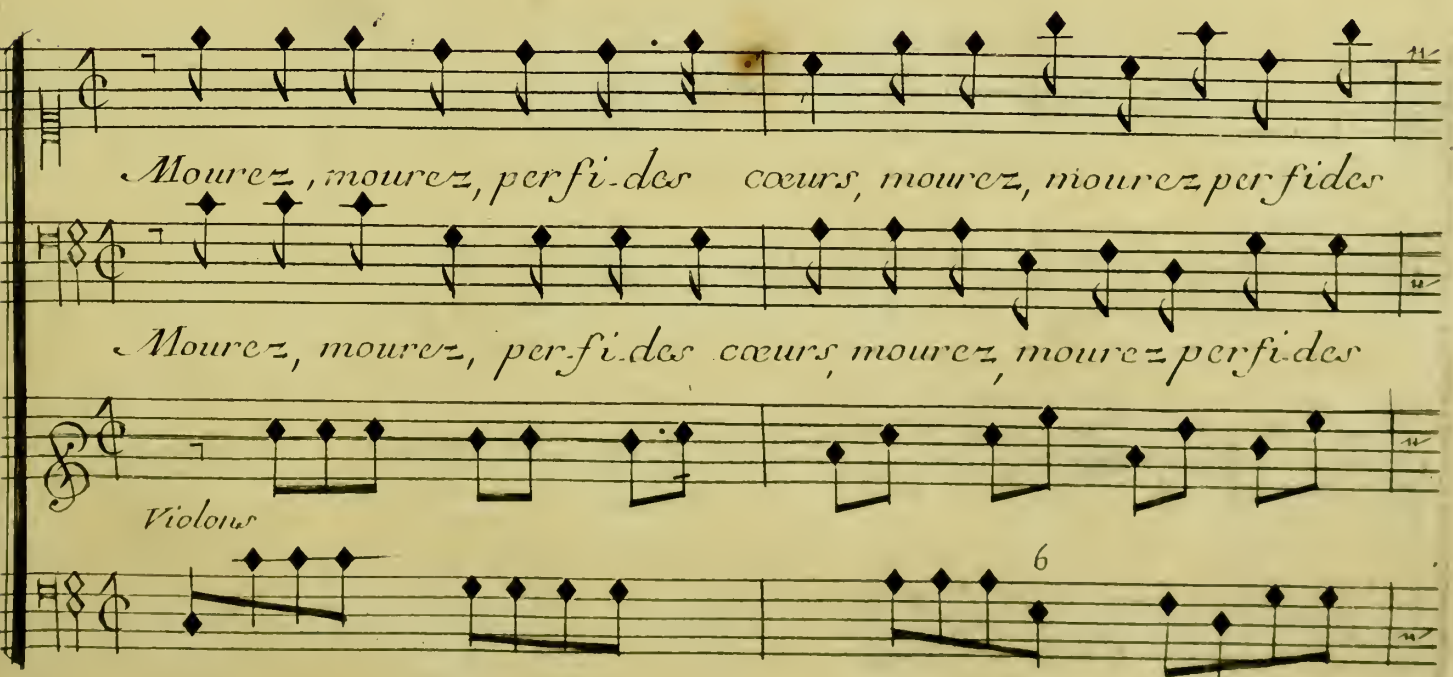 Mourez, mourez, perfi-des cœurs, mourez, mourez perfides
Mourez, mourez, per-fi-des cœurs, mourez, mourez perfi-des
Violons
6